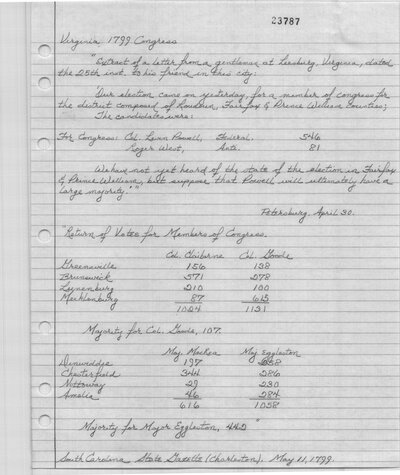 23787
Virginia, 1799. Congress
"Extract of a letter from a gentleman at Leesburg, Virginia, dated
the 25th inst. to his friend in this city:
'Our election came on yesterday, for a member of congress for
the district composed of Loudoun, Fairfax & Prince William Counties;
The candidates were:
For Congress: Col. Leven Powell, Federal. 546
Roger West, Ante. 81
We have not yet heard of the state of the election in Fairfax
& Prince William, but suppose that Powell will ultimately have a
large majority'"
Petersburg, April 30.
"Return of Votes for Members of Congress.
Col. Claiborne Col. Goode
Greensville 156 138
Brunswick 571 278
Lunenburg 210 100
Mecklenburg 87 615
1024 1131
Majority for Col. Goode, 107.
Maj. Mackea Maj. Eggleston
Dinwiddge 197 258
Chesterfield 344 286
Nottoway 29 230
Amelia 46 284
616 1058
Majority for Major Eggleston, 442 "
South Carolina State Gazette (Charleston). May 11, 1799.